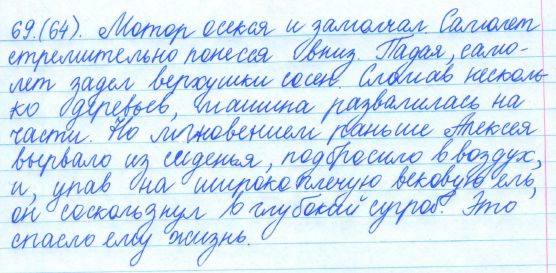 69.(64). Мотор осекся и замолчал. Самолет
стремительно понесся вниз. Падая, само-
лет задел верхушки сосен. Сломав несколь-
ко деревьев, машина развалилась на
части. Но мгновением раньше Алексея
вырвало из сиденья, подбросило в воздух,
и, упав на широкоплечую вековую ель,
он соскользнул в глубокий сугроб. Это
спасло ему жизнь.